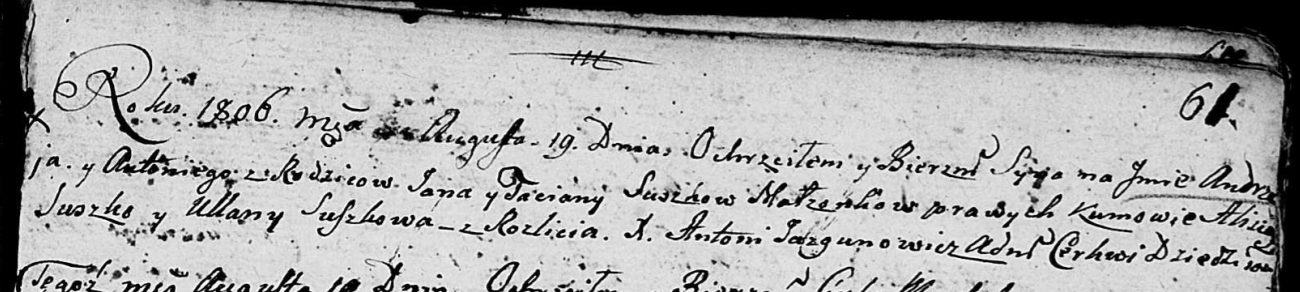 61.
Roku. 1806. Mca Augusta. 19. Dnia. Ochrzciłem y Bierzm Syna na Jmie Andrze
ja. y Antoniego z Rodzicow Jana y Taciany Suszkow Małżonkow prawych Kumowie
Suszko y Ullany Suszkowa – z Rozlicia. X. Antoni Jazgunowicz Adm Cerkwi
Tegoż mca Augusta 19 Dnia Ochrzciłem